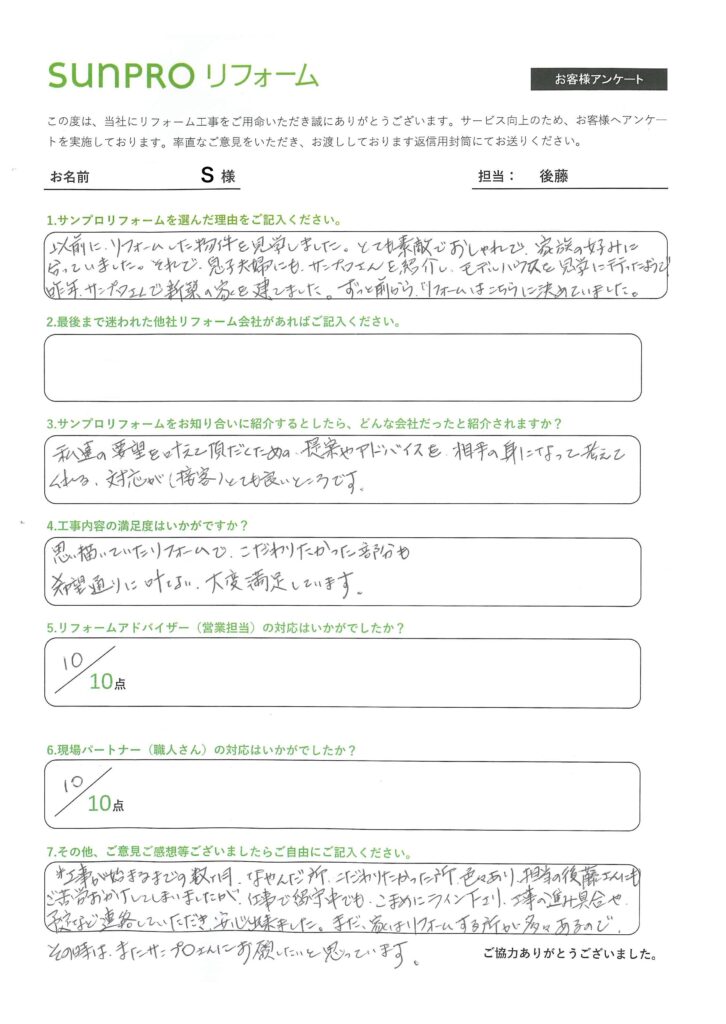 sunpro リフォーム
お客様アンケート
この度は、当社にリフォーム工事をご用命いただき誠にありがとうございます。サービス向上のため、お客様へアンケー
トを実施しております。率直なご意見をいただき、お渡ししております返信用封筒にてお送りください。
お名前 S 様 担当： 後藤
1.サンプロリフォームを選んだ理由をご記入ください。
以前に、リフォームした物件を見学しました。とても素敵でおしゃれで、家族の好みに
合っていました。それで、息子夫婦にも、サンプロさんを紹介し、モデルハウスを見学に行ったようで
昨年、サンプロさんで新築の家を建てました。ずっと前から、リフォームはこちらに決めていました。
2.最後まで迷われた他社リフォーム会社があればご記入ください。
3.サンプロリフォームをお知り合いに紹介するとしたら、どんな会社だったと紹介されますか？
私達の要望を叶えて頂だくための、提案やアドバイスを、相手の身になって考えて
くれる、対応が（接客）とても良いところです。
4.工事内容の満足度はいかがですか？
思い描いていたリフォームで、こだわりたかった部分も
希望通りに叶でき、大変満足しています。
5.リフォームアドバイザー（営業担当）の対応はいかがでしたか？
10
10点
6.現場パートナー（職人さん）の対応はいかがでしたか？
10
10点
7.その他、ご意見ご感想等ございましたらご自由にご記入ください。
工事が始まるまでの数ヶ月、なやんだ所、こだわりたかった所、色々あり、担当の後藤さんにも
ご苦労おかけしてしまいましたが、仕事で留守中でも、こまめにライン下さり、工事の進み具合や、
予定など連絡していただき、安心出来ました。まだ、家はリフォームする所が多々あるので、
その時は、またサンプロさんにお願したいと思っています。
ご協力ありがとうございました。